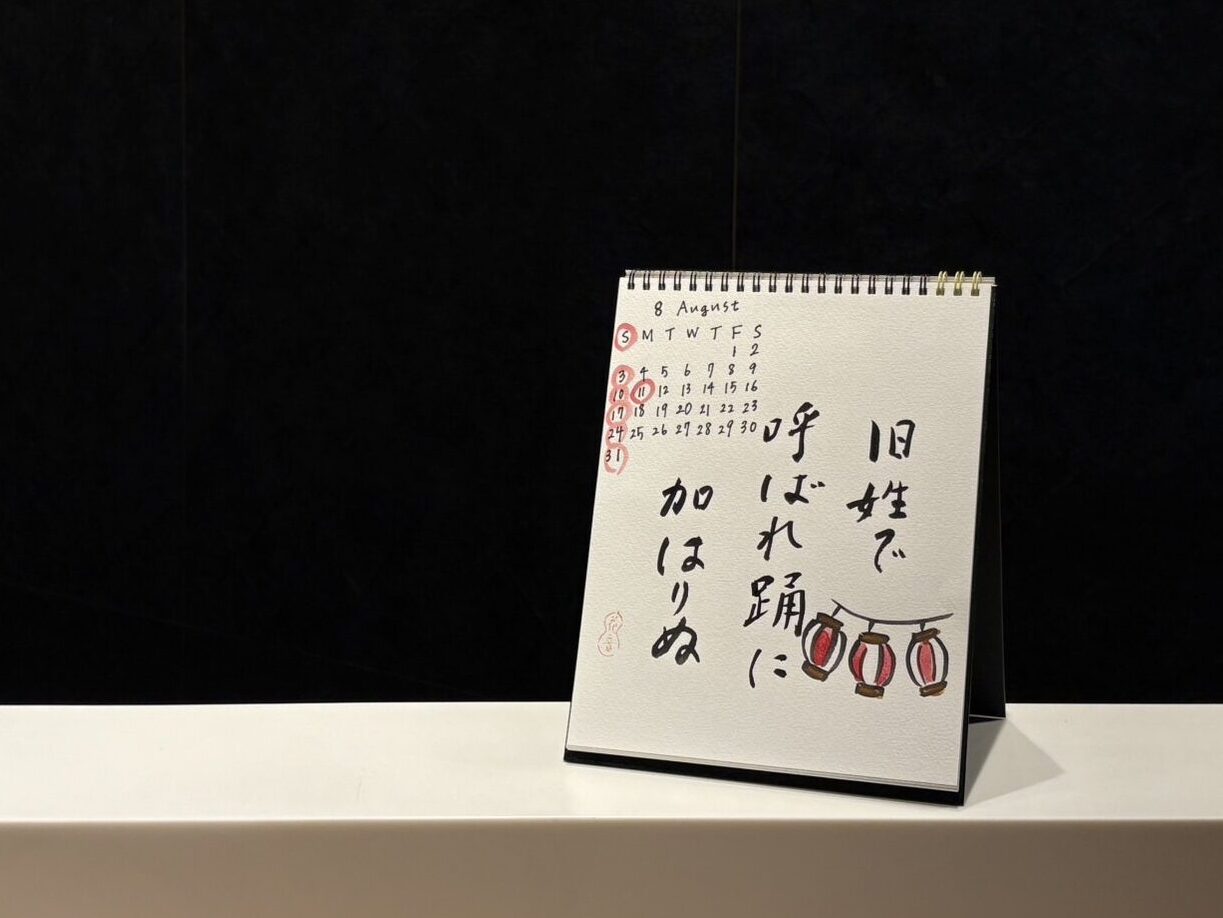 8 August
S M T W T F S
1 2
3 4 5 6 7 8 9
10 11 12 13 14 15 16
17 18 19 20 21 22 23
24 25 26 27 28 29 30
31
旧姓で
呼ばれ踊に
加はりぬ